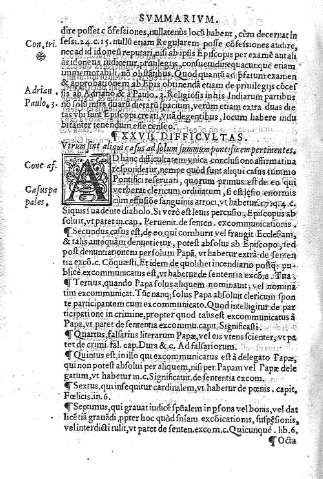 SVMMARIVM.
dire posset cõfessiones, nullatenus locũ habent, cùm decernat in
Con. tri. sess. 24. c. 15. nullũ etiam Regularem posse cõfessiones audire,
nec ad id idoneũ reputari, nisi ab ipsis Episcopis per examẽ
aut idoneus iudicetur, privilegijs, consuetudine quacunque etiam
immemorabili, nõ obstantibus. Quod quantũ ad examen
approbationem ab Epis. obtinendã etiam de priuilegijs
Adrian. ab Adriano & Paulo. 3. Religiosis in his Indiarum partibus
Paulo, 3. nõ solũ intra duas dietas spacium, verùm etiam extra duas die
tas vbi sunt Episcopi creati, vita degentibus, locum habere indu
bitanter tenendum esse censeo.
¶ XXVII. DIFFICVLTAS.
Vtrum sint aliqui casus ad solum summum pontificem pertinentes.
Conc. af. AD hanc difficultatem vnica conclusione affirmatiua
respondetur, nempe quòd sunt aliqui casus summo
Casus pa Pontifici reseruati, quorum primus est de eo qui
pales. verberat clericum
cum effusione sanguinis atroci, vt habetur
Siquis suadente diabolo. Si verò est leuis percusio, Episcopis ab
soluit, vt patet in c. Peruenit. de senten. excommunicationis.
¶ Secundus casus est, de eo qui comburit vel frangit Ecclesiam,
& talis antequàm denuntietur, potest absolui ab Episcopo, sed
post denuntiationem per solum Papã, vt habetur extrà de senten
tia excõ. c. Cõquesti. Et idem de quolibet incendiario postq̃ pu-
blicè excommunicatus est, vt habetur de sententia excõe. Tua
¶ Tertius, quando Papa solus aliquem nominat, vel nomina
tim excommunicat. Tũc nanq; solus Papa absoluit clericum spon
te participantem cum excommunicato. Quod intelligitur de par
ticipatione in crimine, propter quod talis est excommunicatus à
Papa, vt patet de sententia excommu. capit. Significasti.
¶ Quartus, falsarius literarum Papæ, vel eis vtens scienter, vt pa
tet de crimi. fal. cap. Dura & c. Ad falsariorum.
¶ Quintus est, in illo qui excommunicatus est à delegato Papæ,
qui non potest absolui per aliquem, nisi per Papam vel Papæ dele
gatum, vt habetur in c. Significauit. de sententia excom.
¶ Sextus, qui insequitur cardinalem, vt habetur de pœnis. capit.
Fœlicis. in. 6.
¶ Septimus, qui grauat iudicẽ in psona vel bonis, vel dat
licẽtiã grauãdi ppter hoc quòd excõicationis, suspẽsionis,
vel interdicti tulit, vt patet de senten. excom. c. Quicunque. lib. 6.
¶ Octa